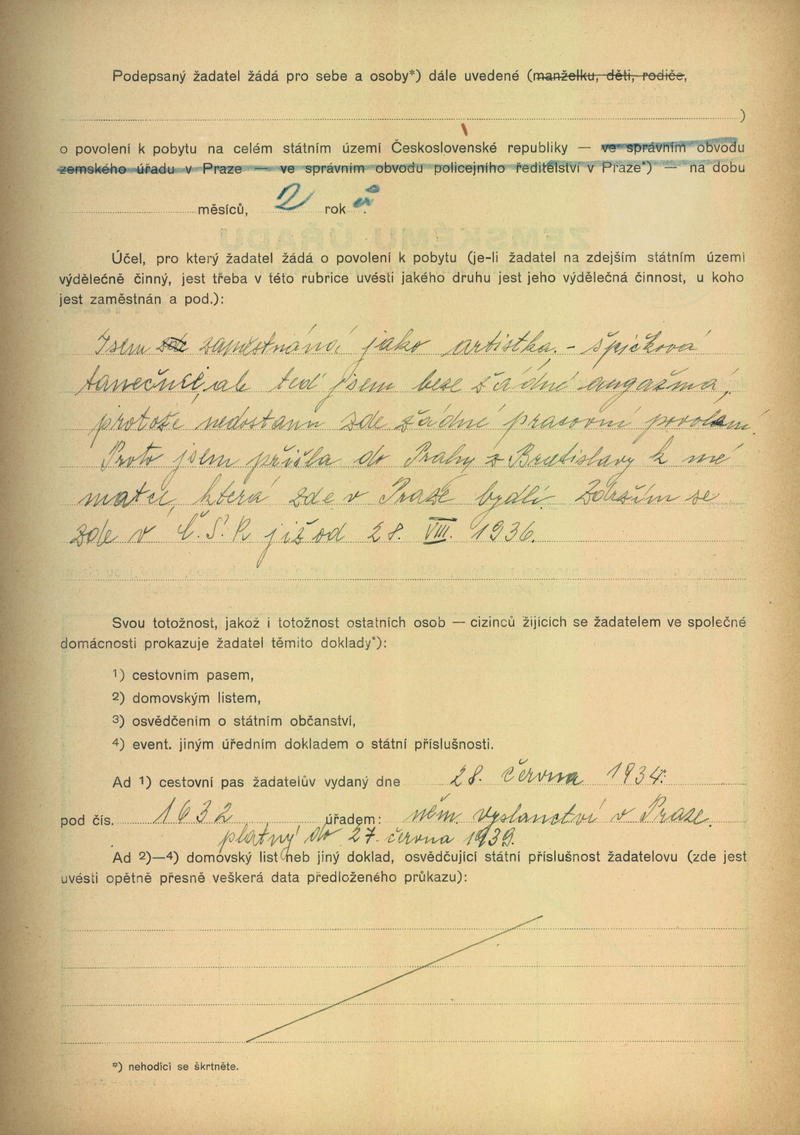 Podepsaný žadatel žádá pro sebe a osoby*) dále uvedené (manželku, děti, rodiče,
)
o povolení k pobytu na celém státním území Československé republiky — ve správním obvodu
zemského úřadu v Praze — ve správním obvodu policejního ředitelství v Praze*) — na dobu
měsíců, 2 rok ů.
Účel, pro který žadatel žádá o povolení k pobytu (je-li žadatel na zdejším státním území
výdělečně činný, jest třeba v této rubrice uvésti jakého druhu jest jeho výdělečná činnost, u koho
jest zaměstnán a pod.):
Jsem zaměstnáná jako artistka. - špičková
tanečnicí, ale teď jsem beze žádné angažmá,
protože nedostanu zde žádné pracovní povolení.
Proto jsem přišla do Prahy z Bratislavy k mé
matce, která zde v Praze bydlí. Zdržím se
zde v Č.S.R již od 28. VIII. 1936.
Svou totožnost, jakož i totožnost ostatních osob — cizinců žijících se žadatelem ve společné
domácnosti prokazuje žadatel těmito doklady*):
1) cestovním pasem,
2) domovským listem,
3) osvědčením o státním občanství,
4) event. jiným úředním dokladem o státní příslušnosti.
Ad 1) cestovní pas žadatelův vydaný dne 28. června 1934.
pod čís. 1632 úřadem: něm. vyslanctví v Praze.
platný do 27. června 1939.
Ad 2)—4) domovský list neb jiný doklad, osvědčující státní příslušnost žadatelovu (zde jest
uvésti opětně přesně veškerá data předloženého průkazu):
*) nehodící se škrtněte.